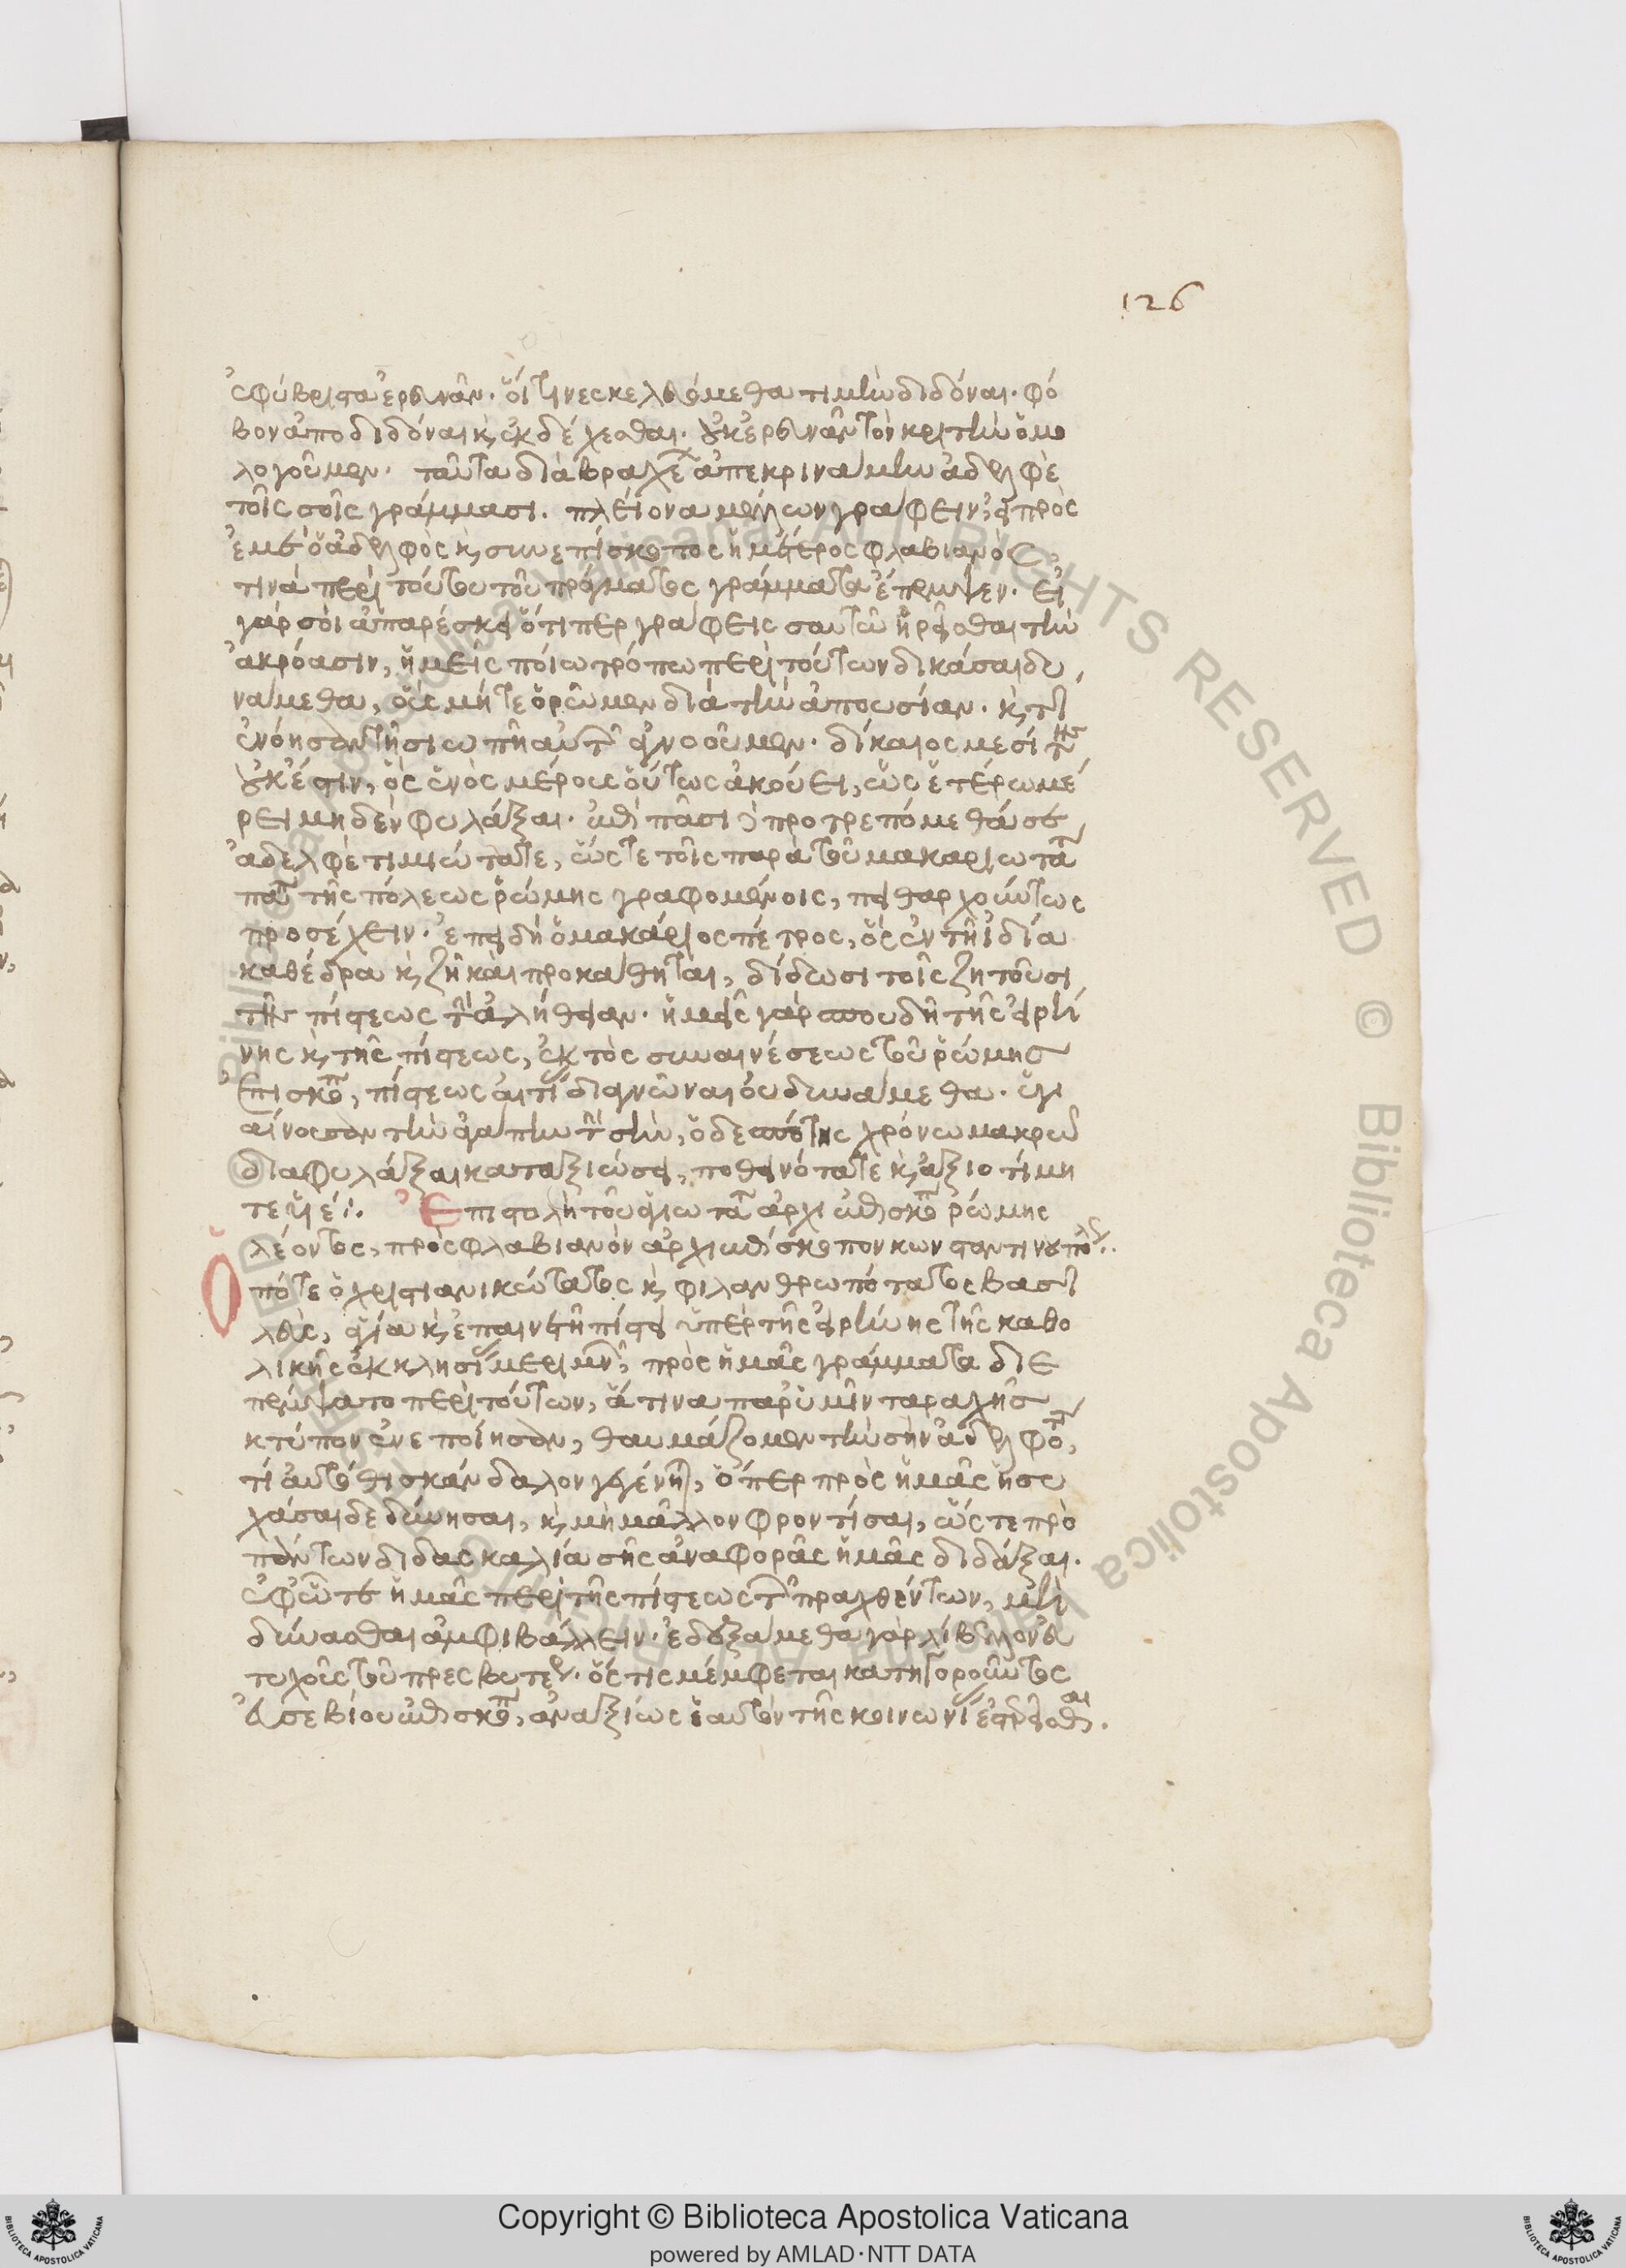 126
ἐφύβριστα ἐρευνᾶν. οἵτινες κελευόμεθα τιμὴν διδόναι. φό
βον ἀποδιδόναι κ ἐκδέχεσθαι. οὐκ ἐρευνᾶν τὸν κριτὴν ὁμο
λογοῦμεν. ταῦτα διὰ βραχέ ἀπεκρινάμην ἀδελφὲ
τοῖς σοῖς γράμμασι. πλείονα μέλλων γράφειν, εἰ πρὸς
ἐμὲ ὁ ἀδελφὸς κ συνεπίσκοπος ἡμέτερος φλαβιανὸς
τινὰ περὶ τούτου τοῦ πράγματος γράμματα ἔπεμψεν. εἰ
γάρ σοι ἀπαρέσκει ὅτιπερ γράφεις σαυτῶ ἡρεῖσθαι τὴν
ἀκρόασιν, ἡμεῖς ποίω τρόπω περὶ τούτων δικάσαι δυ
νάμεθα, οὓς μήτε ὁρῶμεν διὰ τὴν ἀπουσίαν. κ τί
ἐνόησαν τῆ σιωπῆ αὐτ ἀγνοοῦμεν. δίκαιος μεσίτης
οὐκ ἔστιν, ὃς ἑνὸς μέρους οὕτως ἀκούει, ὡς ἑτέρω μέ
ρει μηδὲν φυλάξαι. ἐπὶ πᾶσι προτρεπόμεθά σε
ἀδελφὲ τιμιώτατε, ὥστε τοῖς παρὰ τοῦ μακαριωτά
πάπ τῆς πόλεως ῥώμης γραφομένοις, πειθαρχούντως
προσέχειν. ἐπειδὴ ὁ μακάριος πέτρος, ὃς ἐν τῆ ἰδία
καθέδρα κ ζῆ καὶ προκάθηται, δίδωσι τοῖς ζητοῦσι
τῆς πίστεως τ ἀλήθειαν. ἡμεῖς γὰρ σπουδῆ τῆς εἰρή
νης κ τῆς πίστεως, ἐκτὸς συναινέσεως τοῦ ῥώμης
ἐπισκόπ, πίστεως αἰτί διαγνῶναι οὐ δυνάμεθα. ὑγι
αίνουσαν τὴν ἀγάπην τ σὴν, ὁ δεσπότης χρόνω μακρῶ
διαφυλάξαι καταξιώσει, ποθεινότατε κ ἀξιοτίμη
τε υἱέ:. Ἐπιστολὴ τοῦ ἁγιωτά ἀρχιεπισκόπ ῥώμης
λέοντος, πρὸς φλαβιανὸν ἀρχιεπίσκοπον κωνσταντινουπόλ.
Ὁπότε ὁ χριστιανικώτατος κ φιλανθρωπότατος βασι
λεὺς, ἁγία κ ἐπαινετῆ πίστει ὑπὲρ τῆς εἰρήνης τῆς καθο
λικῆς ἐκκλησί μεριμν, πρὸς ἡμᾶς γράμματα διε
πέμψατο περὶ τούτων, ἅτινα παρ' ὑμῖν ταραχῆς
κτύπον ἐνεποίησαν, θαυμάζομεν τὴν σὴν ἀδελφότ,
τί αὐτόθι σκάνδαλον γεγένη, ὅπερ πρὸς ἡμᾶς ἡσυ
χάσαι δεδύνησαι, κ μὴ μᾶλλον φροντίσαι, ὥστε πρὸ
πάντων διδασκαλία σῆς ἀναφορᾶς ἡμᾶς διδάξαι.
ἐφ' ὧτε ἡμᾶς περὶ τῆς πίστεως τ πραχθέντων, μὴ
δύνασθαι ἀμφιβάλλειν. ἐδεξάμεθα γὰρ λίβελλον εὐ
τυχοῦς τοῦ πρεσβυτέρ. ὅστις μέμφεται κατηγοροῦντος
εὐσεβίου ἐπισκόπ, ἀναξίως ἑαυτὸν τῆς κοινωνί ἐστερεῖσθαι.
Copyright © Biblioteca Apostolica Vaticana
powered by AMLAD·NTT DATA